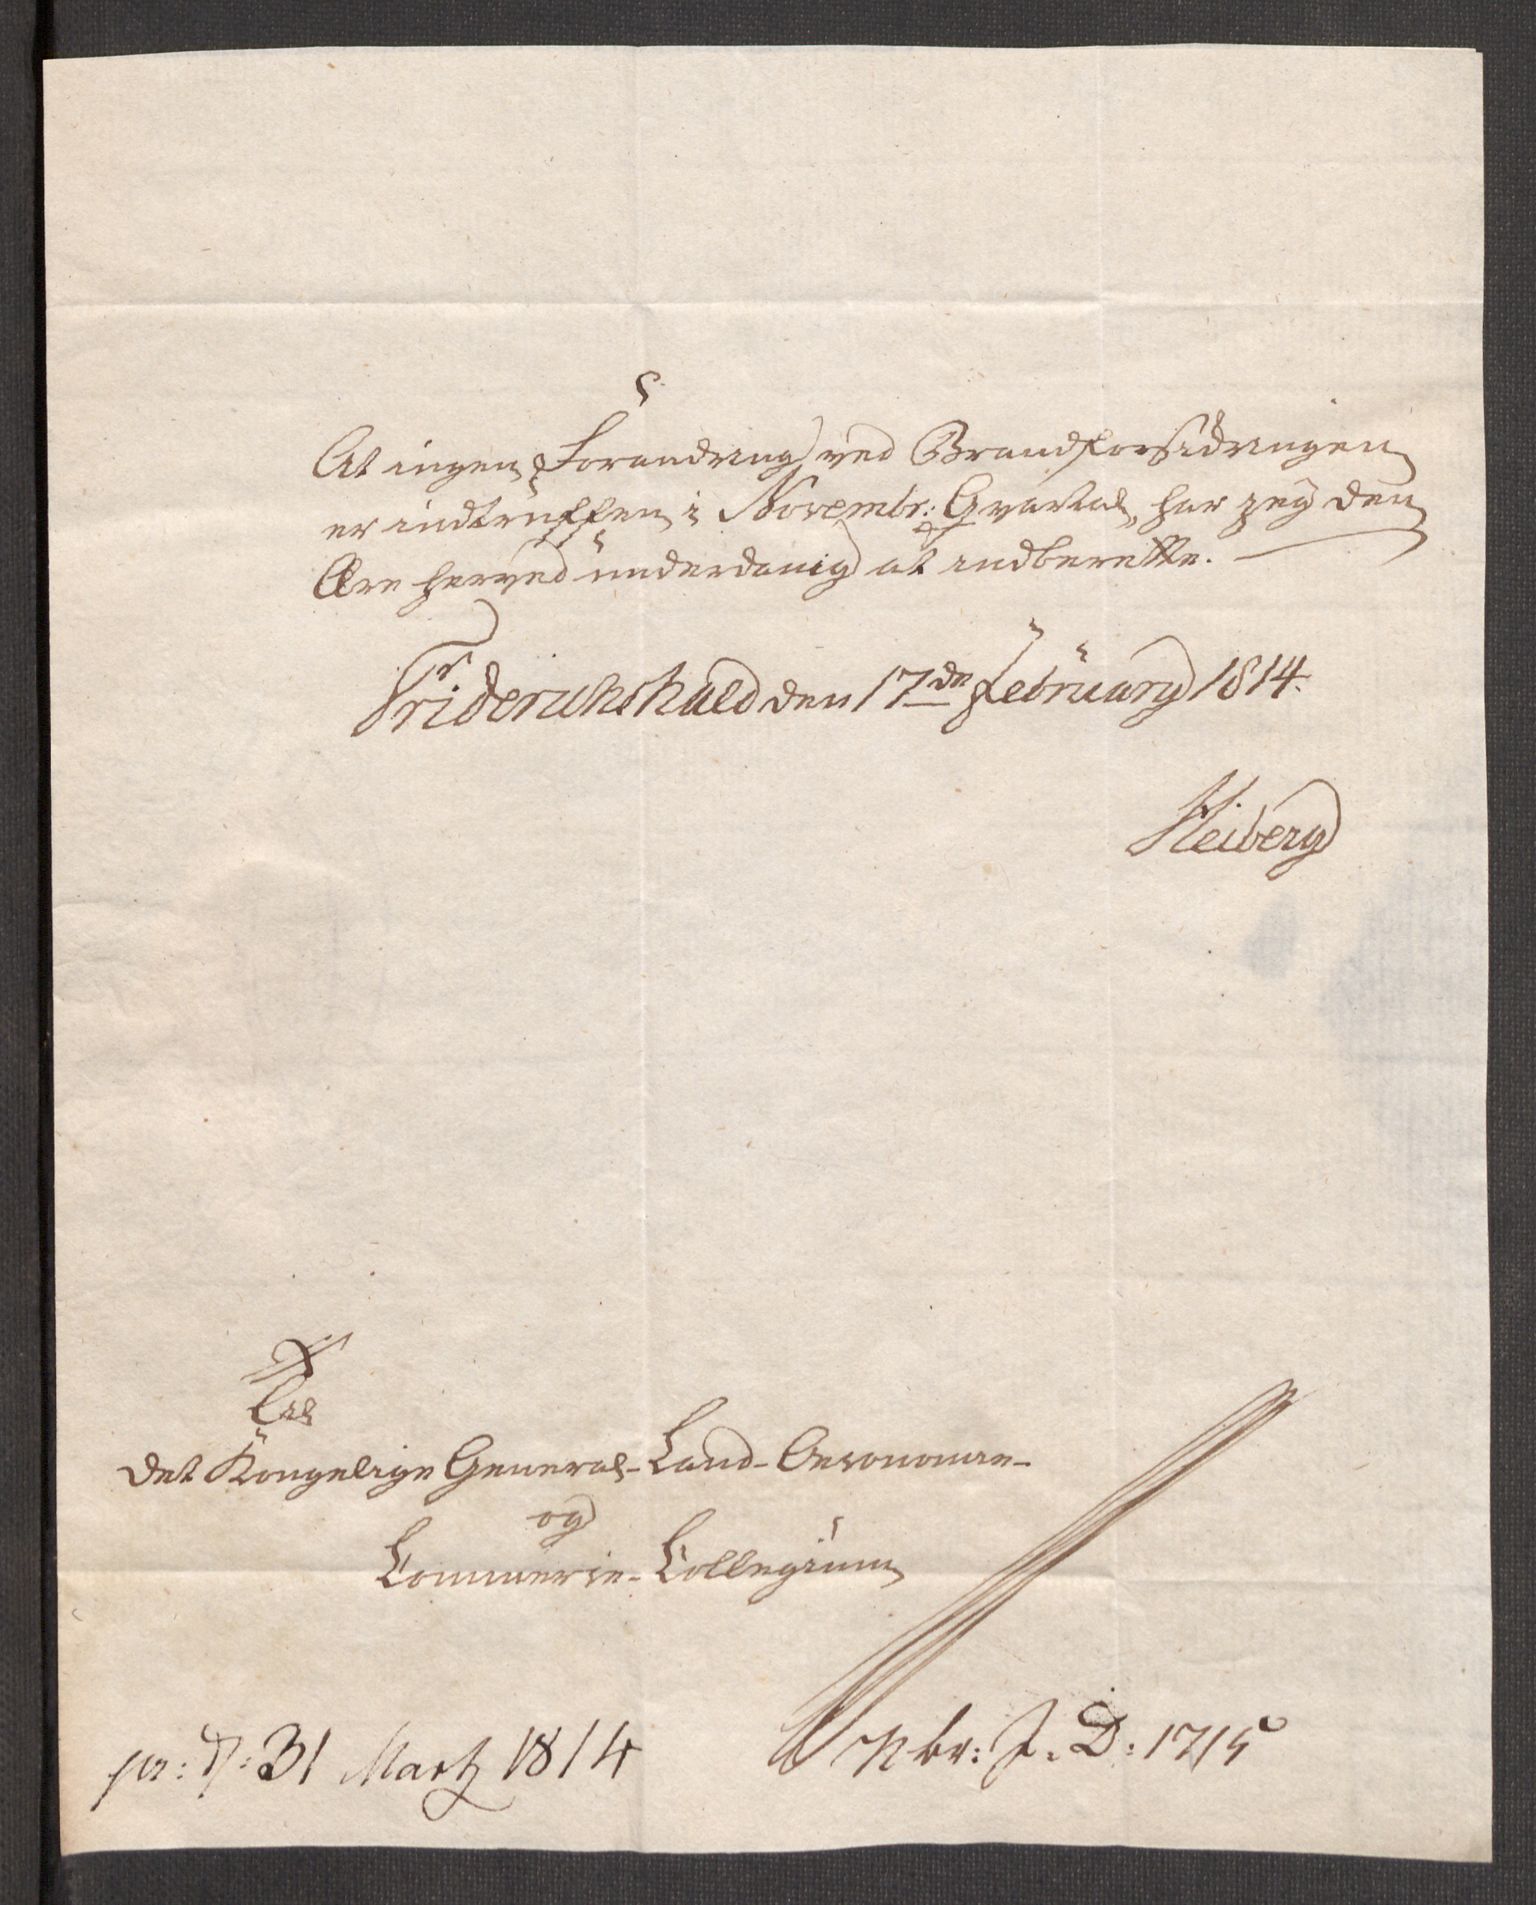 At ingen Forandring ved Brandforsikringen
er indtruffen i Novembr: Qvartal, har jeg den
Ære herved underdanig at indberette. —
Friderichshald den 17de Februarÿ 1814.
Heiberg
Til
det Kongelige General-Land-Oeconomie-
og
Commerce-Collegium
pr: d: 31 Martz 1814
Nbr: J. D: 1715